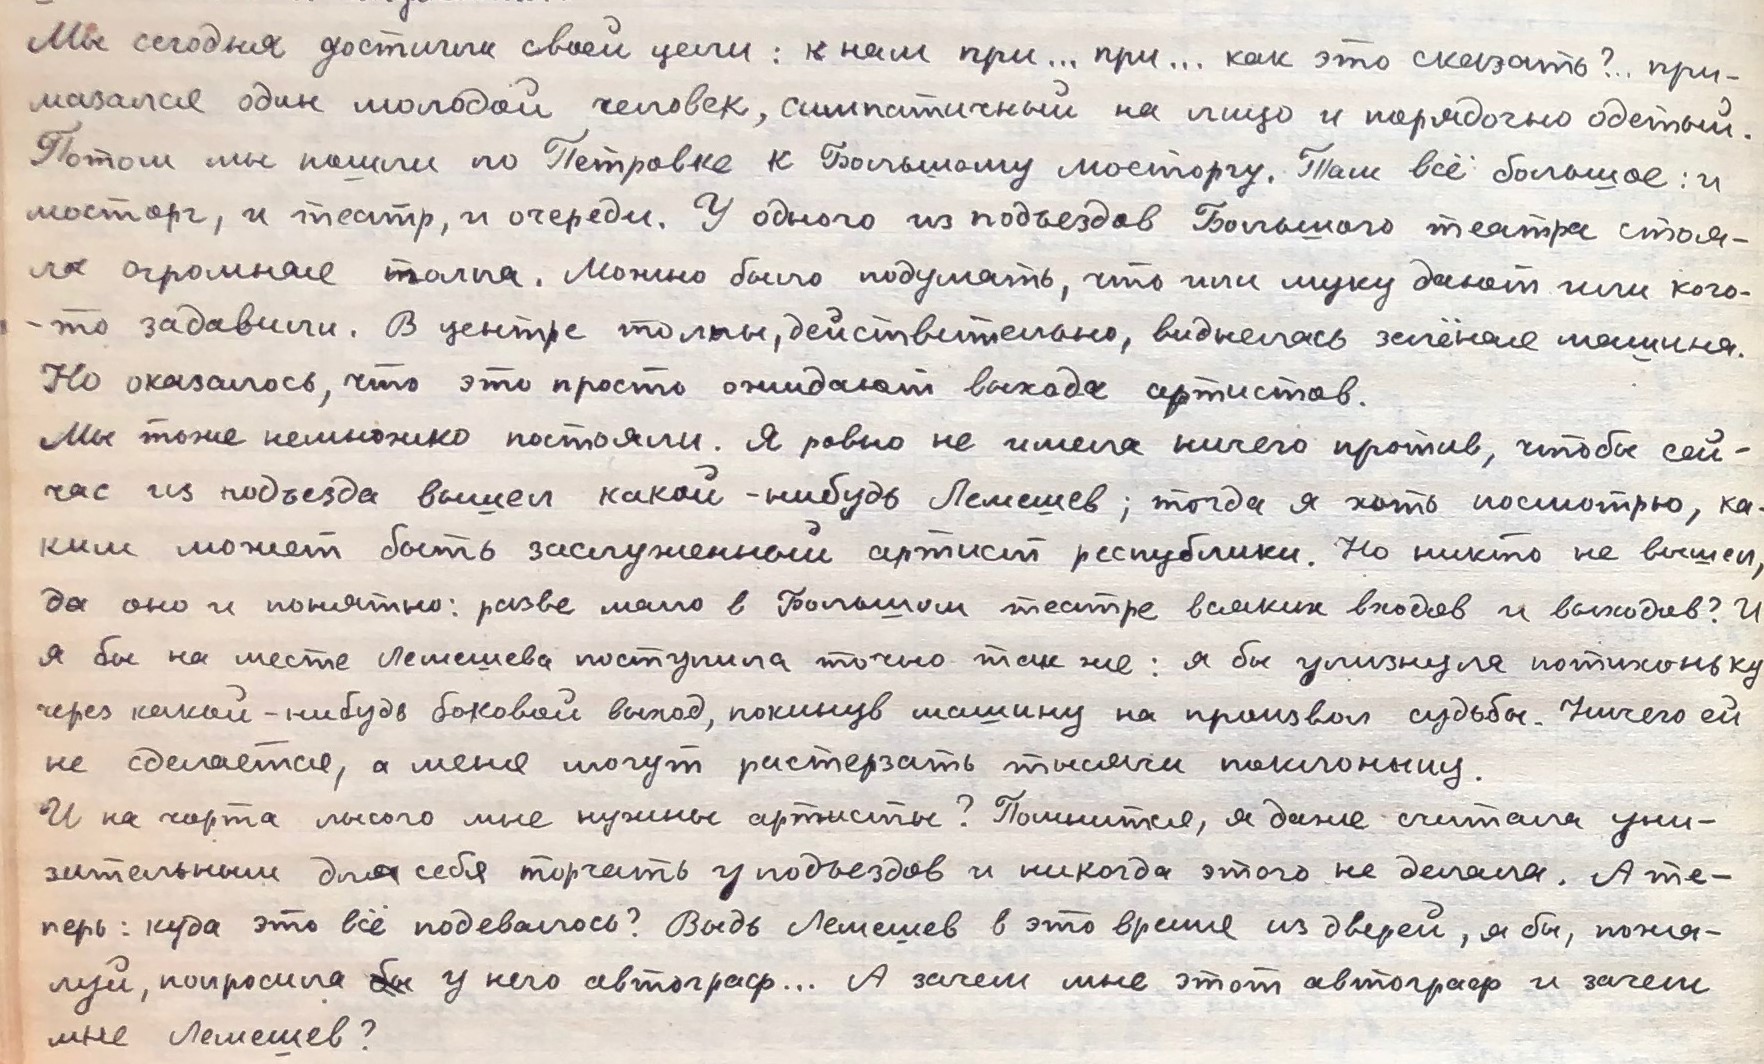 Мы сегодня достигли своей цели: к нам при... при... как это сказать?.. при-
мазался один молодой человек, симпатичный на лицо и порядочно одетый.
Потом мы пошли по Петровке к Большому мосторгу. Там всё большое: и
мосторг, и театр, и очереди. У одного из подъездов Большого театра стоя-
ла огромная толпа. Можно было подумать, что или муку дают или кого-
-то задавили. В центре толпы, действительно, виднелась зелёная машина.
Но оказалось, что это просто ожидают выхода артистов.
Мы тоже немножко постояли. Я ровно не имела ничего против, чтобы сей-
час из подъезда вышел какой-нибудь Лемешев; тогда я хоть посмотрю, ка-
ким может быть заслуженный артист республики. Но никто не вышел,
да оно и понятно: разве мало в Большом театре всяких входов и выходов? И
я бы на месте Лемешева поступила точно так же: я бы улизнула потихоньку
через какой-нибудь боковой выход, покинув машину на произвол судьбы. Ничего ей
не сделается, а меня могут растерзать тысячи поклонниц.
И на чорта лысого мне нужны артисты? Помнится, я даже считала уни-
зительным для себя торчать у подъездов и никогда этого не делала. А те-
перь: куда это всё подевалось? Выдь Лемешев в это время из дверей, я бы, пожа-
луй, попросила у него автограф... А зачем мне этот автограф и зачем
мне Лемешев?